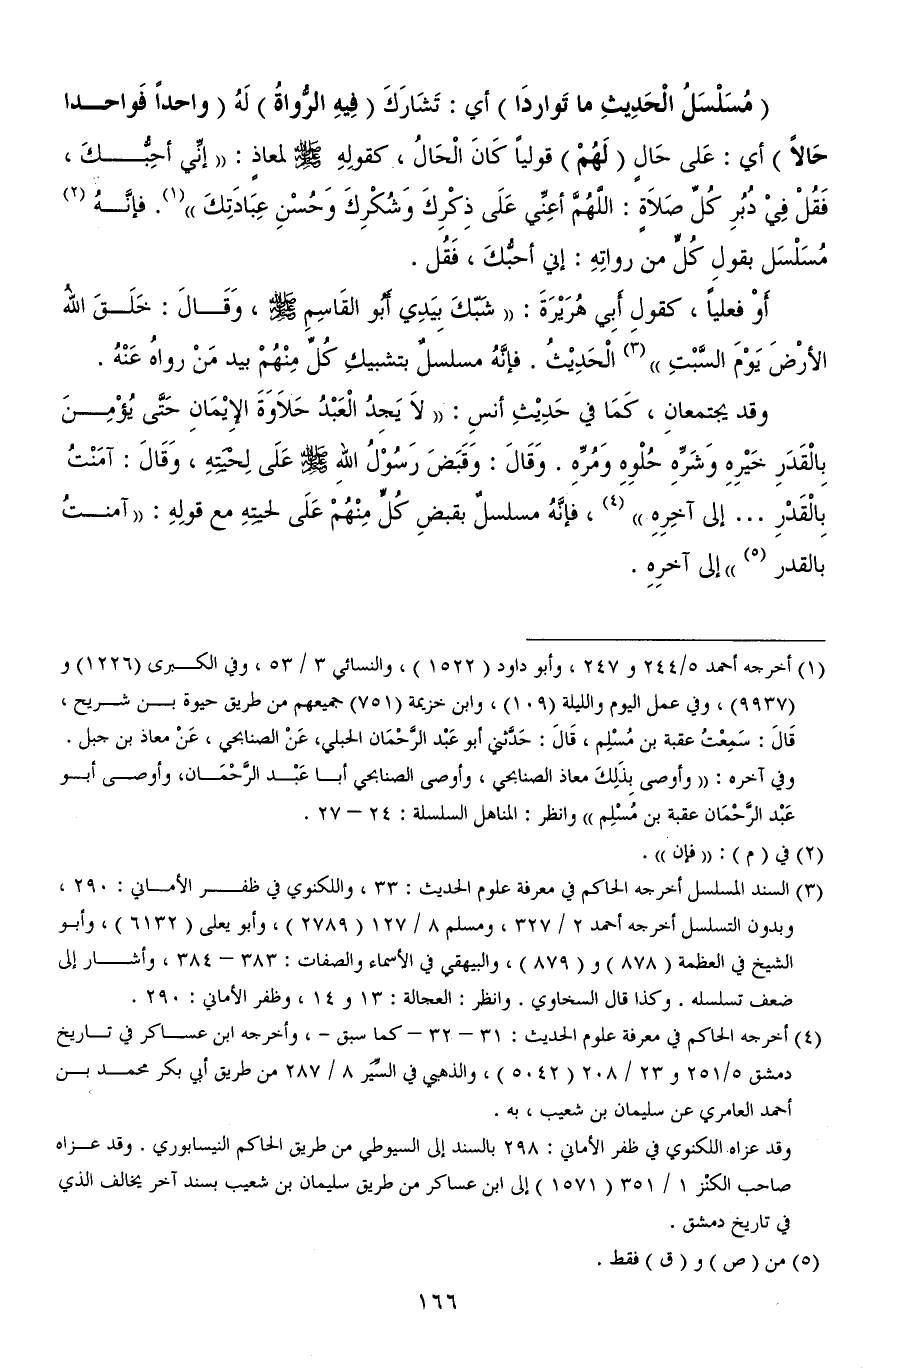 ( مُسَلْسَلُ الْحَدِيثِ ما تَواردَا ) أي : تَشَارَكَ ( فِيهِ الرُّواةُ ) لَهُ ( واحداً فَواحــدا
حَالاً ) أي : عَلى حَالٍ ( لَهُمْ ) قولياً كَانَ الْحَالُ ، كقولِهِ ﷺ لمعاذٍ : (( إنِّي أحِبُّــــكَ ،
فَقُلْ فِيْ دُبُرِ كُلِّ صَلاَةٍ : اللَّهُمَّ أعِنِّي عَلَى ذِكْرِكَ وَشُكْرِكَ وَحُسْنِ عِبَادَتِكَ ))(١). فإنَّــهُ (٢)
مُسَلْسَل بقولِ كُلٍّ من رواتِهِ : إني أحبُّكَ ، فَقُل .
أَوْ فعلياً ، كقولِ أَبِي هُرَيْرَةَ : (( شَبَّكَ بِيَدِي أَبُو القَاسِمِ ﷺ ، وَقَــالَ : خَلَـقَ اللهُ
الأرْضَ يَوْمَ السَّبْتِ ))(٣) الْحَدِيْثُ . فإنَّهُ مسلسلٌ بتشبيكِ كُلٍّ مِنْهُمْ بيد مَنْ رواهُ عَنْهُ .
وقد يجتمعان ، كَمَا في حَدِيْثِ أنس : (( لاَ يَجِدُ الْعَبْدُ حَلاَوَةَ الإيْمَانِ حَتَّى يُؤْمِــنَ
بِالْقَدَرِ خَيْرِهِ وَشَرِّهِ حُلْوِهِ وَمُرِّهِ . وَقَالَ : وَقَبَضَ رَسُوْلُ اللهِ ﷺ عَلَى لِحْيَتِهِ ، وَقَالَ : آمَنْتُ
بِالْقَدْرِ ... إلى آخِرِهِ )) (٤) ، فإنَّهُ مسلسلٌ بقبضِ كُلٍّ مِنْهُمْ عَلَى لحيتِهِ مع قولِهِ : (( آمنــتُ
بالقدر (٥) )) إلى آخرِهِ .
(١) أخرجه أحمد ٢٤٤/٥ و ٢٤٧ ، وأبو داود ( ١٥٢٢ ) ، والنسائي ٣ / ٥٣ ، وفي الكــبرى (١٢٢٦) و
(٩٩٣٧) ، وفي عمل اليوم والليلة (١٠٩) ، وابن خزيمة (٧٥١) جميعهم من طريق حيوة بــن شــريح ،
قَالَ : سَمِعْتُ عقبة بن مُسْلِم ، قَالَ : حَدَّثني أبو عَبْد الرَّحْمَان الحبلي، عَنْ الصنابحي ، عَنْ معاذ بن جبل .
وفي آخره : (( وأوصى بِذَلِكَ معاذ الصنابحي ، وأوصى الصنابحي أبــا عَبْــد الرَّحْمَــان، وأوصــى أبــو
عَبْد الرَّحْمَان عقبة بن مُسْلِم )) وانظر : المناهل السلسلة : ٢٤ – ٢٧ .
(٢) في ( م ) : (( فإن )) .
(٣) السند المسلسل أخرجه الحاكم في معرفة علوم الحديث : ٣٣ ، واللكنوي في ظفــر الأمــاني : ٢٩٠ ،
وبدون التسلسل أخرجه أحمد ٢ / ٣٢٧ ، ومسلم ٨ / ١٢٧ ( ٢٧٨٩ ) ، وأبو يعلى ( ٦١٣٢ ) ، وأبــو
الشيخ في العظمة ( ٨٧٨ ) و ( ٨٧٩ ) ، والبيهقي في الأسماء والصفات : ٣٨٣ – ٣٨٤ ، وأشــار إلى
ضعف تسلسله . وكذا قال السخاوي . وانظر : العجالة : ١٣ و ١٤ ، وظفر الأماني : ٢٩٠ .
(٤) أخرجه الحاكم في معرفة علوم الحديث : ٣١ – ٣٢ – كما سبق – ، وأخرجه ابن عســاكر في تــاريخ
دمشق ٢٥١/٥ و ٢٣ / ٢٠٨ ( ٥٠٤٢ ) ، والذهبي في السِّيَر ٨ / ٢٨٧ من طريق أبي بكر محمــد بــن
أحمد العامري عن سليمان بن شعيب ، به .
وقد عزاه اللكنوي في ظفر الأماني : ٢٩٨ بالسند إلى السيوطي من طريق الحاكم النيسابوري . وقد عــزاه
صاحب الكنْز ١ / ٣٥١ ( ١٥٧١ ) إلى ابن عساكر من طريق سليمان بن شعيب بسند آخر يخالف الذي
في تاريخ دمشق .
(٥) من ( ص ) و ( ق ) فقط .
١٦٦